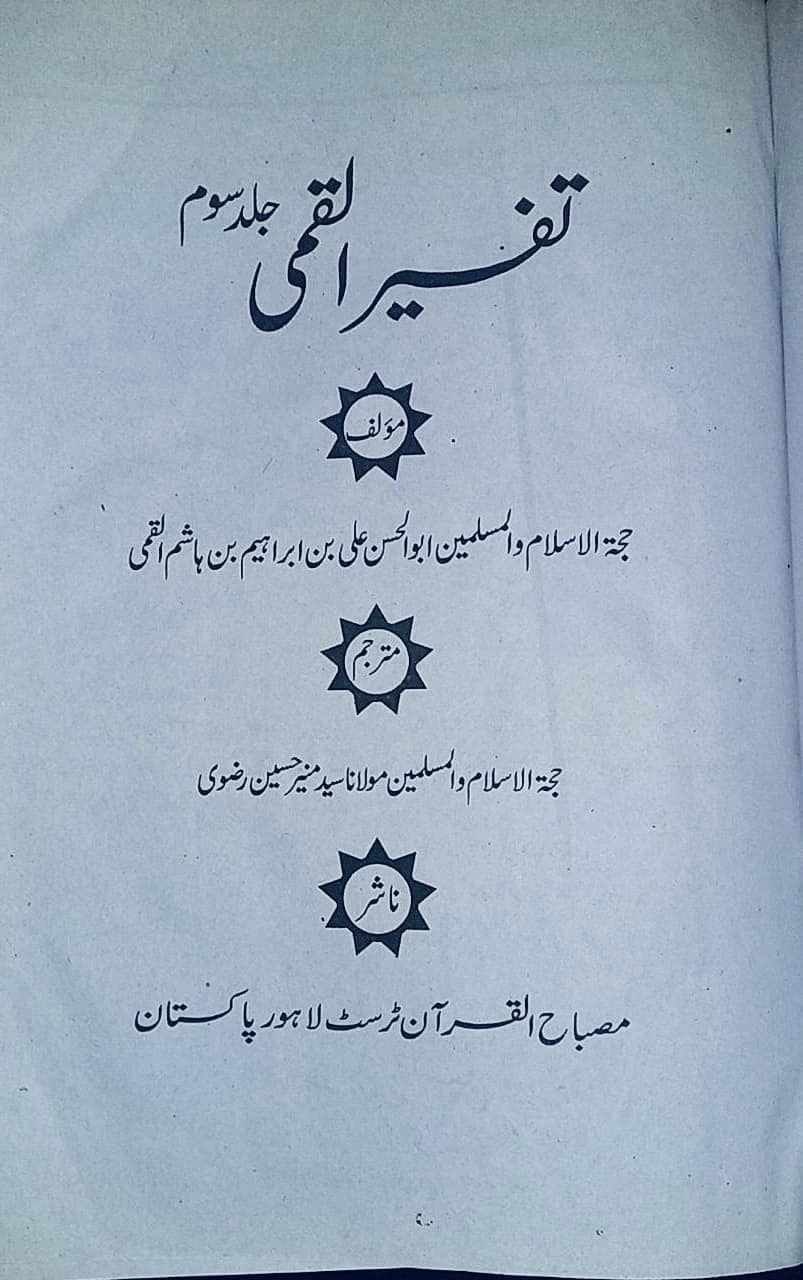 تفسیر القمی جلد سوم
مؤلف
حجۃ الاسلام والمسلمین ابوالحسن علی بن ابراہیم بن ہاشم القمی
مترجم
حجۃ الاسلام والمسلمین مولانا سید منیر حسین رضوی
ناشر
مصباح القرآن ٹرسٹ لاہور پاکستان